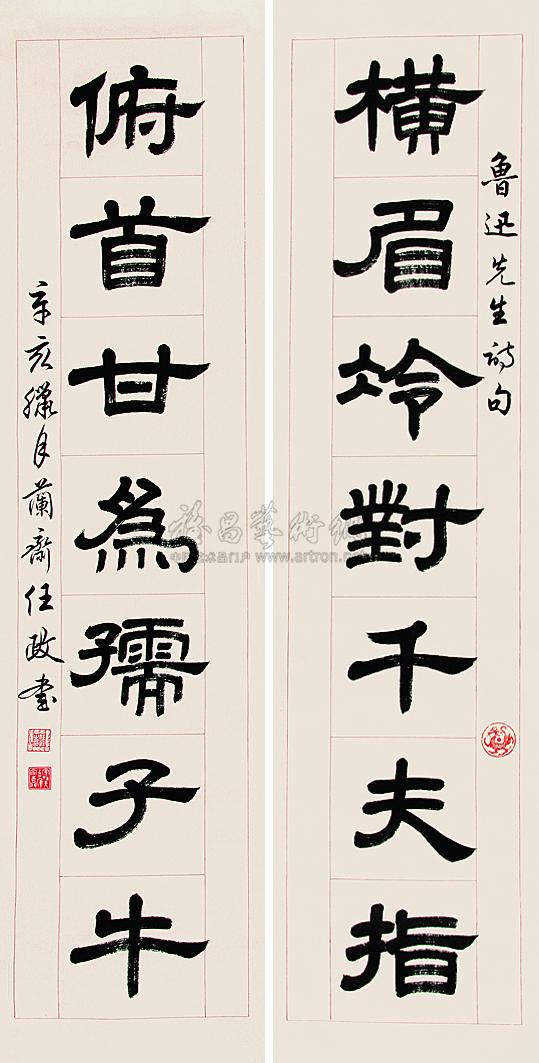 魯迅先生詩句
橫眉冷對千夫指
俯首甘為孺子牛
辛亥臘月蘭齋任政書
www.artron.net